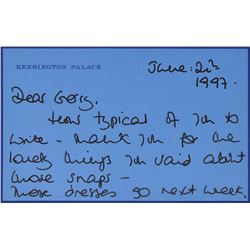 KENSINGTON PALACE
June: 21st
1997.
Dear Gerry,
How typical of you to
write - thank you for the
lovely things you said about
those snaps -
Those dresses go next week,